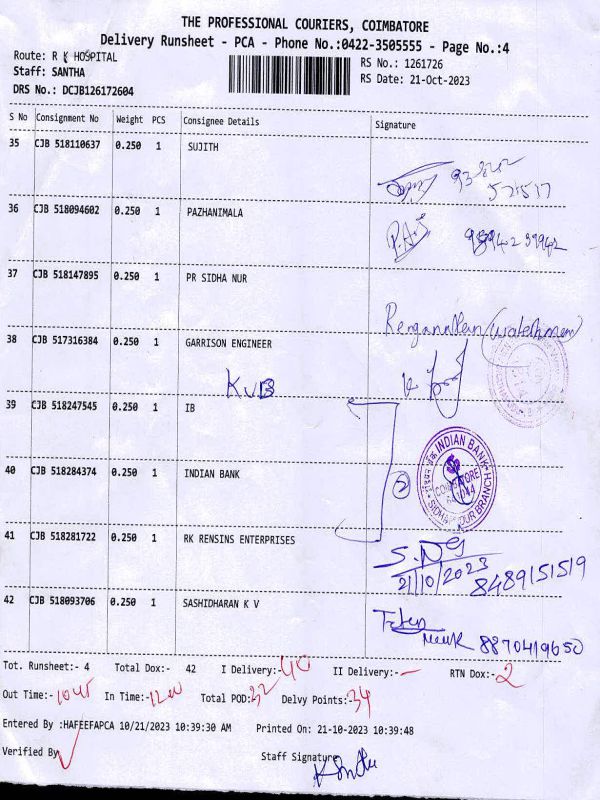 THE PROFESSIONAL COURIERS, COIMBATORE
Delivery Runsheet - PCA - Phone No.:0422-3505555 - Page No.:4
Route: R K HOSPITAL
RS No.: 1261726
Staff: SANTHA
RS Date: 21-Oct-2023
DRS No.: DCJB126172604
S No Consignment No Weight PCS Consignee Details Signature
35 CJB 518110637 0.250 1 SUJITH
36 CJB 518094602 0.250 1 PAZHANIMALA
P.A.S
37 CJB 518147895 0.250 1 PR SIDHA NUR
Renganathan (watchman)
38 CJB 517316384 0.250 1 GARRISON ENGINEER
KVB
39 CJB 518247545 0.250 1 IB
40 CJB 518284374 0.250 1 INDIAN BANK
2
INDIAN BANK
COIMBATORE
41 CJB 518281722 0.250 1 RK RENSINS ENTERPRISES
21/10/2023 8489151519
42 CJB 518093706 0.250 1 SASHIDHARAN K V
8870419650
Tot. Runsheet:- 4 Total Dox:- 42 I Delivery:- 40 II Delivery:- - RTN Dox:- 2
Out Time:- 1045 In Time:- 1200 Total POD: 32 Delvy Points:- 34
Entered By :HAFEEFAPCA 10/21/2023 10:39:30 AM Printed On: 21-10-2023 10:39:48
Verified By
Staff Signature